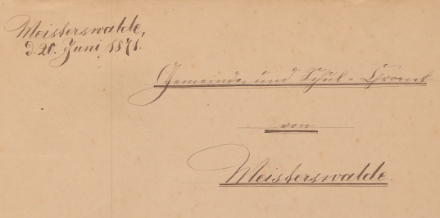 Meisterswalde,
d. 20. Juni 1871.
Gemeinde und Schul-Chronik
von
Meisterswalde